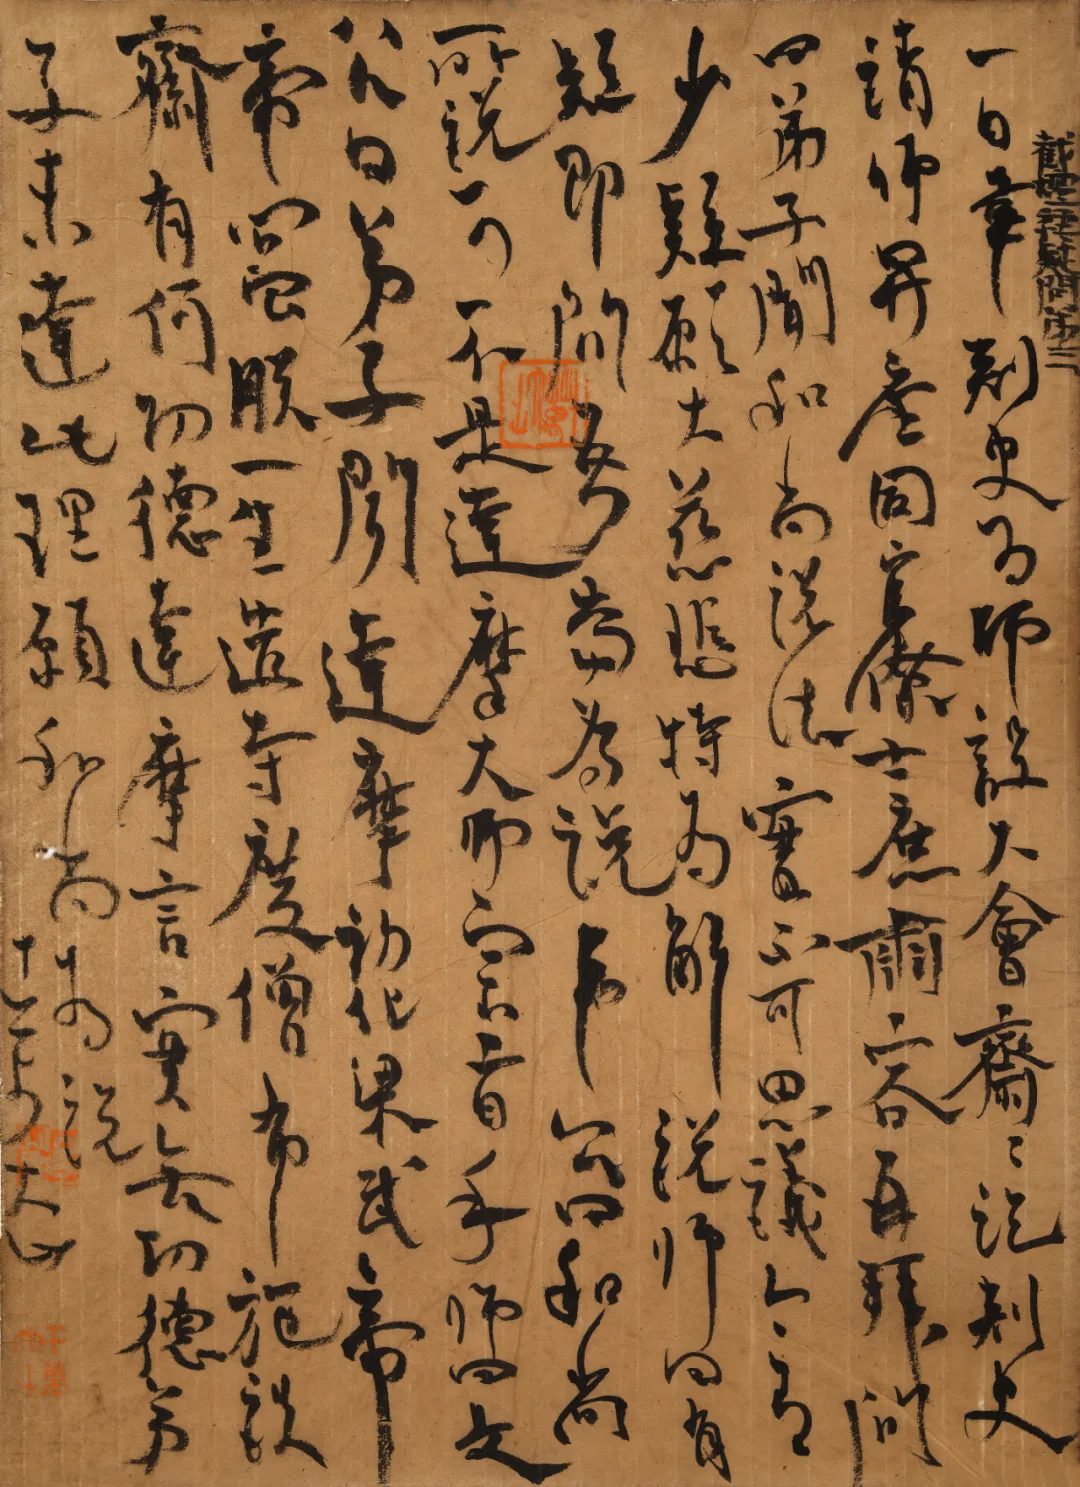 疑問第三
一日韋刺史为師設大會齋〻訖刺史
請師昇座同官僚士庶肅容再拜問
曰弟子聞和尚說法實不可思議今有
少疑願大慈悲特为解說師曰有
疑即問吾當為說韋公曰和尚
所說可不是達摩大師宗旨乎師曰是
公曰弟子聞達摩初化梁武帝
帝問云朕一生造寺度僧布施設
齋有何功德達摩言實無功德弟
子未達此理願和尚为說